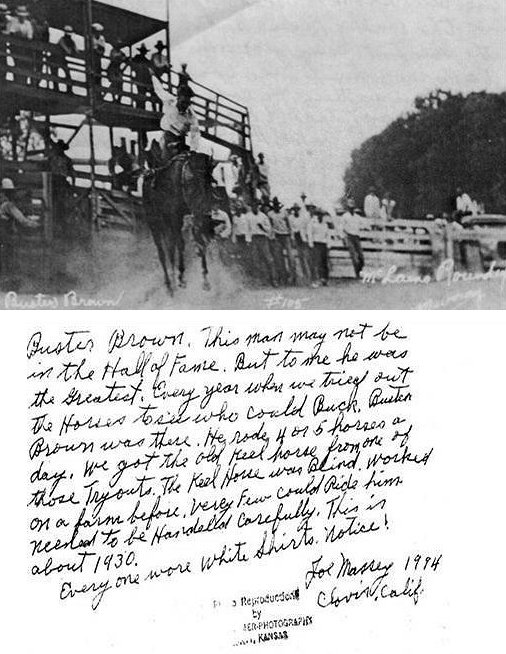 Buster Brown
#108
McLain Roundup
Buster Brown. This man may not be
in the Hall of Fame. But to me he was
the Greatest. Every year when we tried out
the Horses to see who could Buck. Buster
Brown was there. He rode 4 or 5 horses a
day. We got the old Keel horse from one of
those Try outs. The Keel Horse was Blind. Worked
on a farm before. Very Few could Ride him.
needed to be Handelld Carefully. This is
about 1930.
Every one wore White Shirts. notice!
Joe Massey 1994
Clovis, Calif.
Reproduction
by
ER-PHOTOGRAPHY
KANSAS